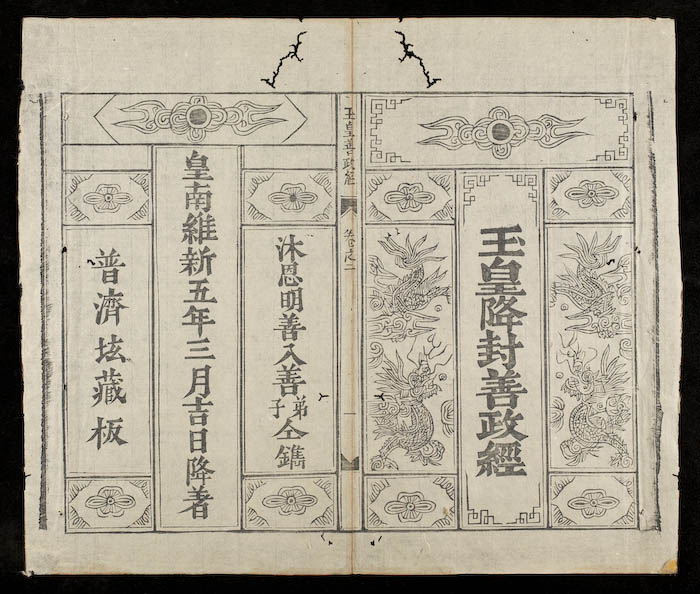 玉皇降封善政經
玉皇善政經
卷之二
一
沐恩明善入善弟子仝鐫
皇南維新五年三月吉日降著
普濟坛藏板